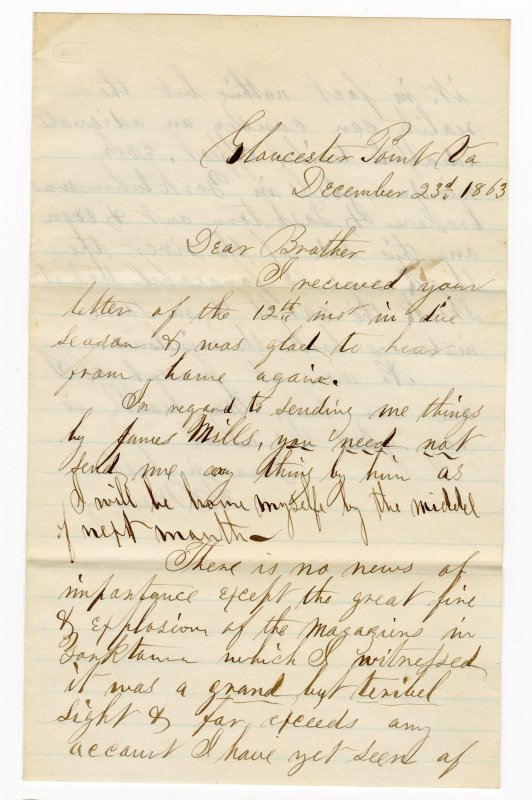 Gloucester Point Va
December 23d 1863
Dear Brother
I recieved your
letter of the 12th inst in due
season & was glad to hear
from home again.
In regard to sending me things
by James Mills, you need not
send me any thing by him as
I will be home myself by the middel
of next month –
There is no news of
importance except the great fire
& explosion of the magazins in
Yorktown which I witnessed
it was a grand but teribel
sight & far exceeds any
account I have yet seen of